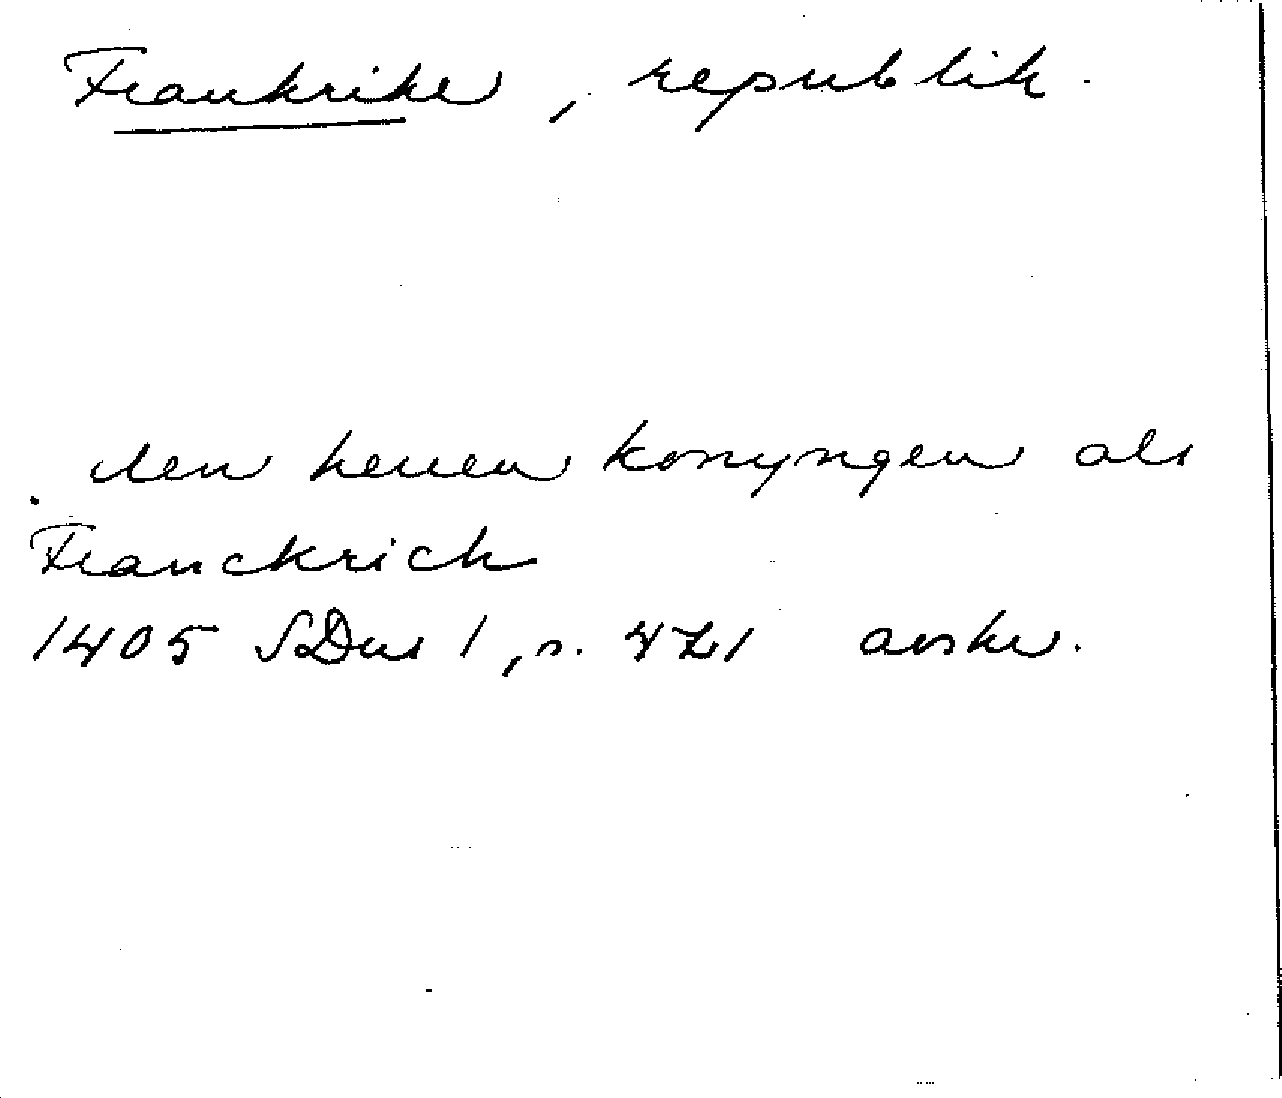 Frankrike, republik.
den herren konyngen als
Franckrich
1405 SDns 1, s. 421 avskr.